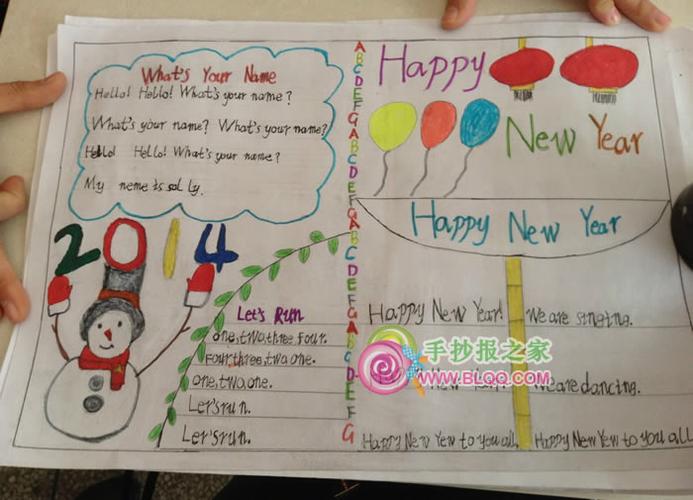 What's Your Name
Hello! Hello! What's your name?
What's your name? What's your name?
Hello Hello! What's your name?
My neme is sal ly.
2014
Let's Run
one, two, three, four.
Four, three, two, one.
one, two, one.
Ler's run.
Ler's run.
ABCDEFGABCDEFGABCDEFGABCDEFG
Happy
New Year
Happy New Year
Happy New Year! We are singing.
New We are dancing.
Happy New Yew to you all Happy New Yew to you all
手抄报之家
WWW.BLQQ.COM